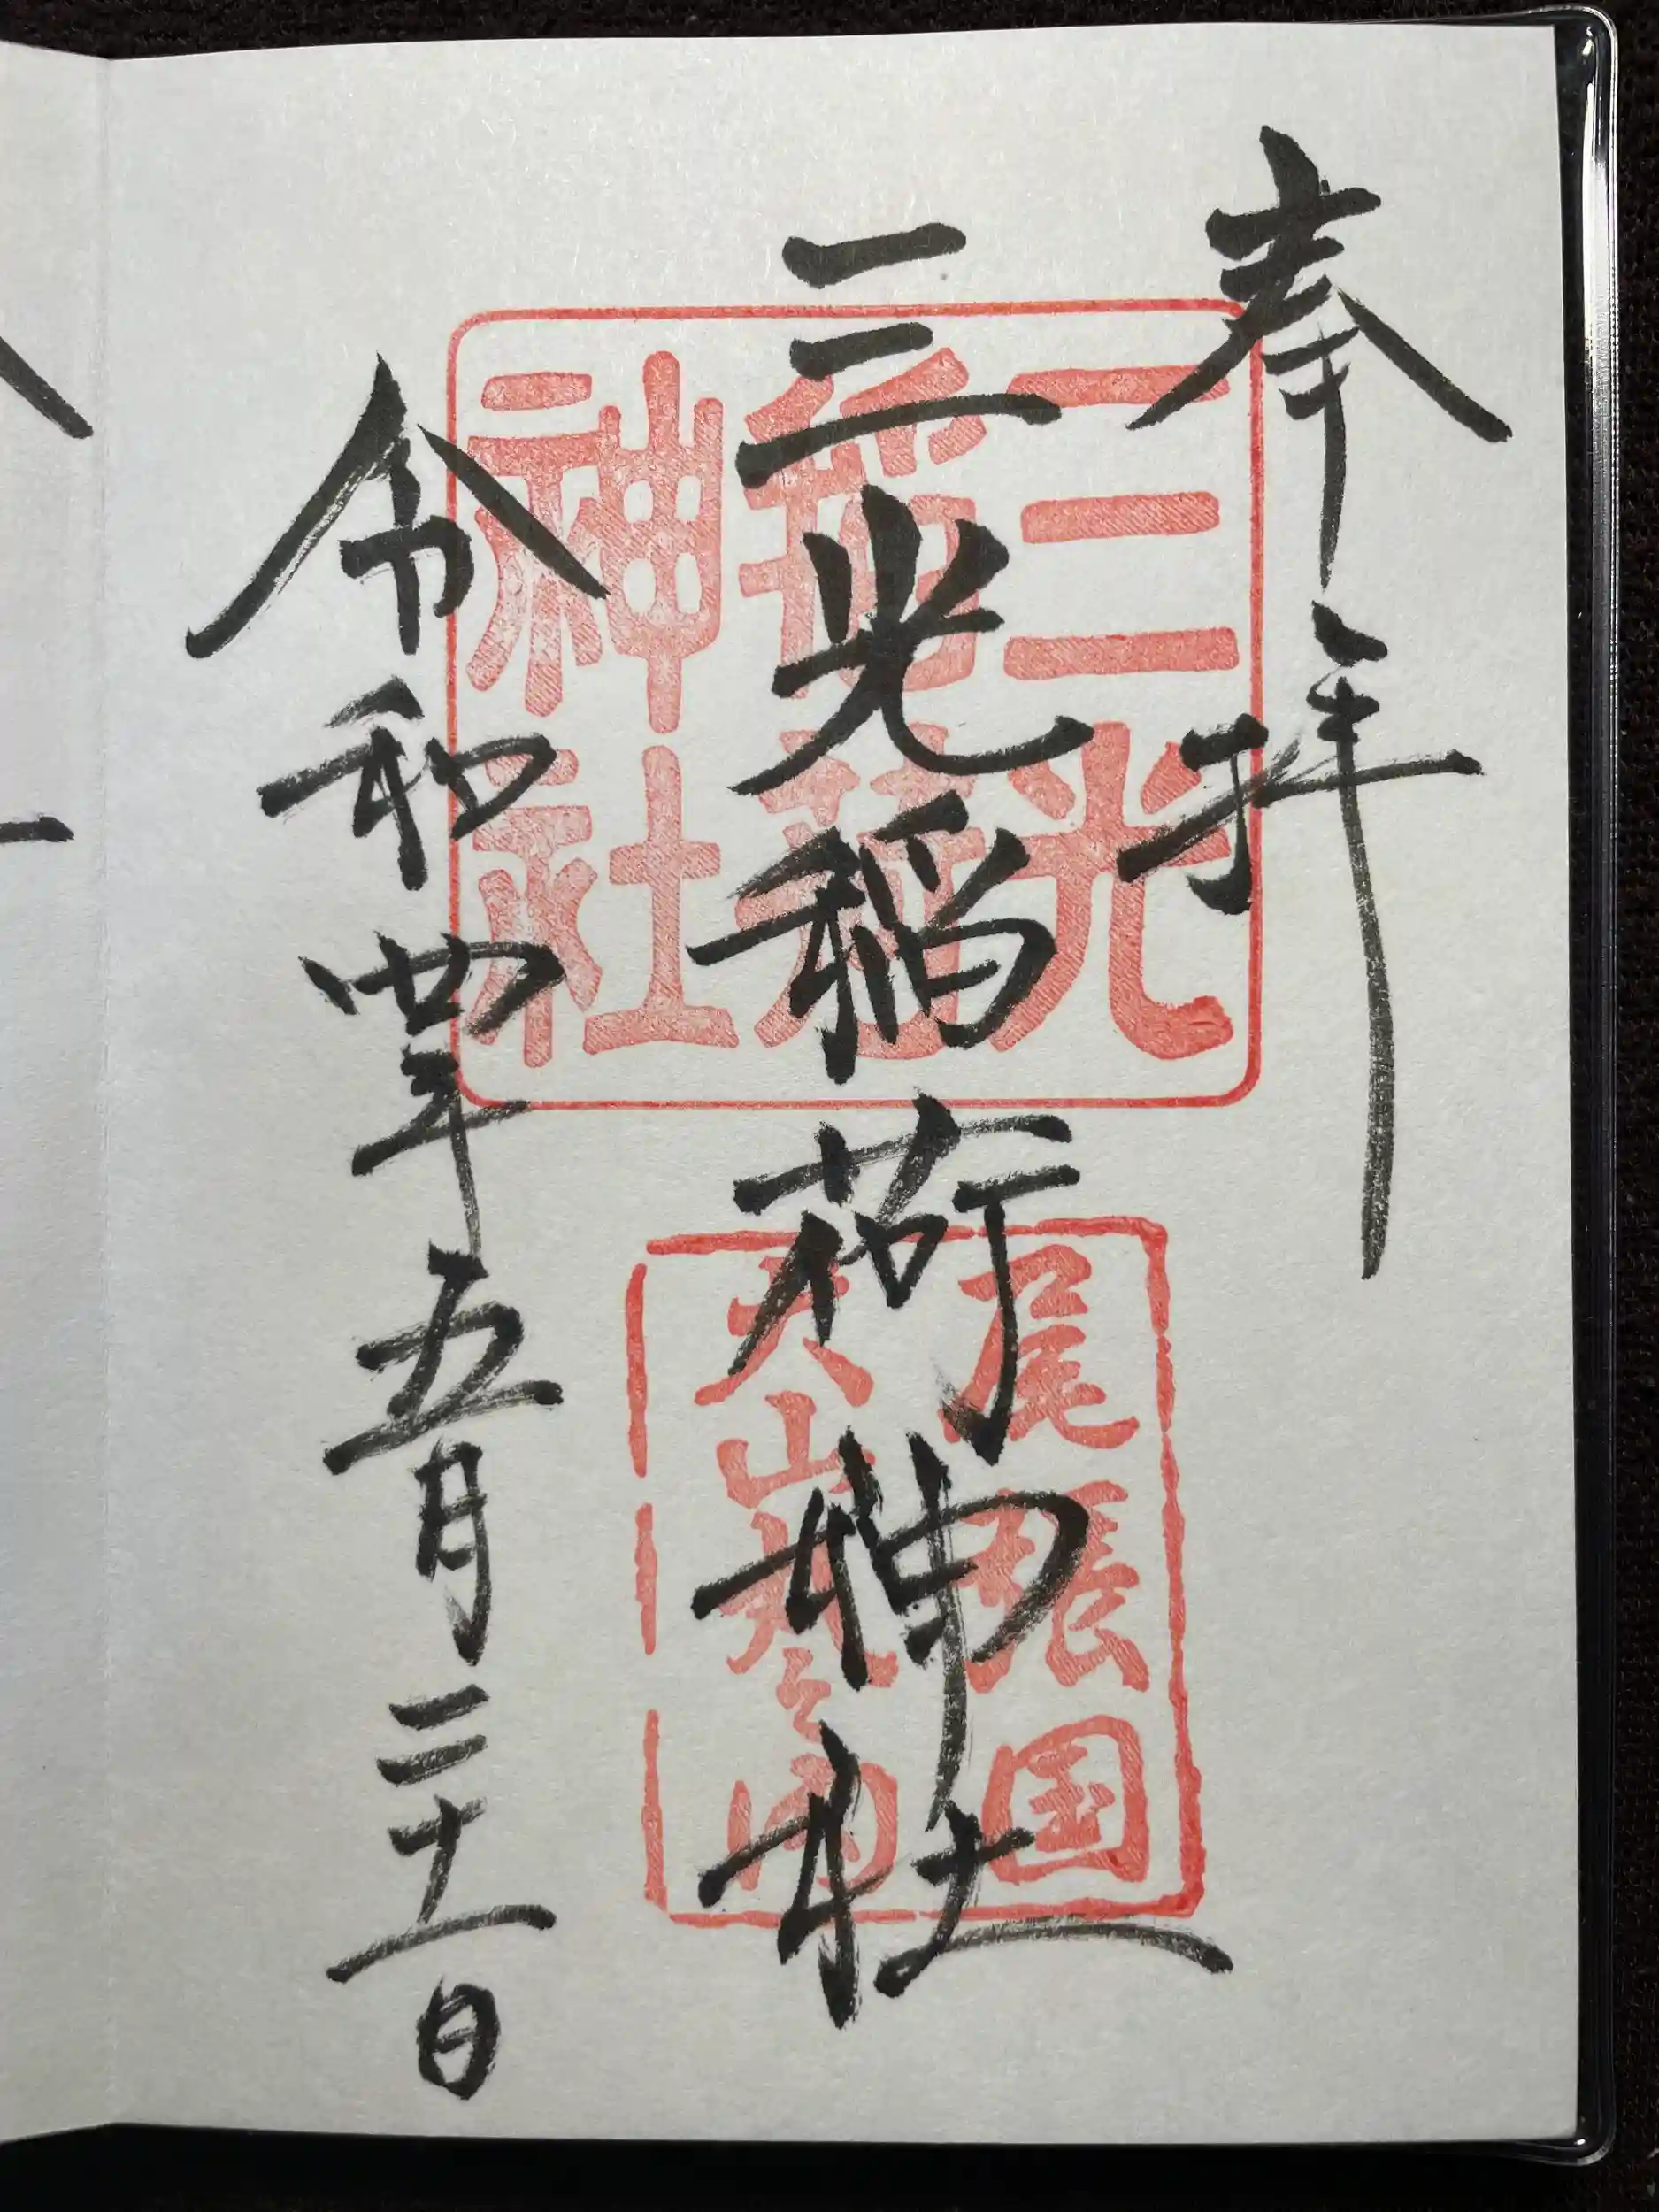 奉拝
三光稲荷神社
令和四年五月三十一日
三光
稲荷
神社
尾張国
犬山城之内